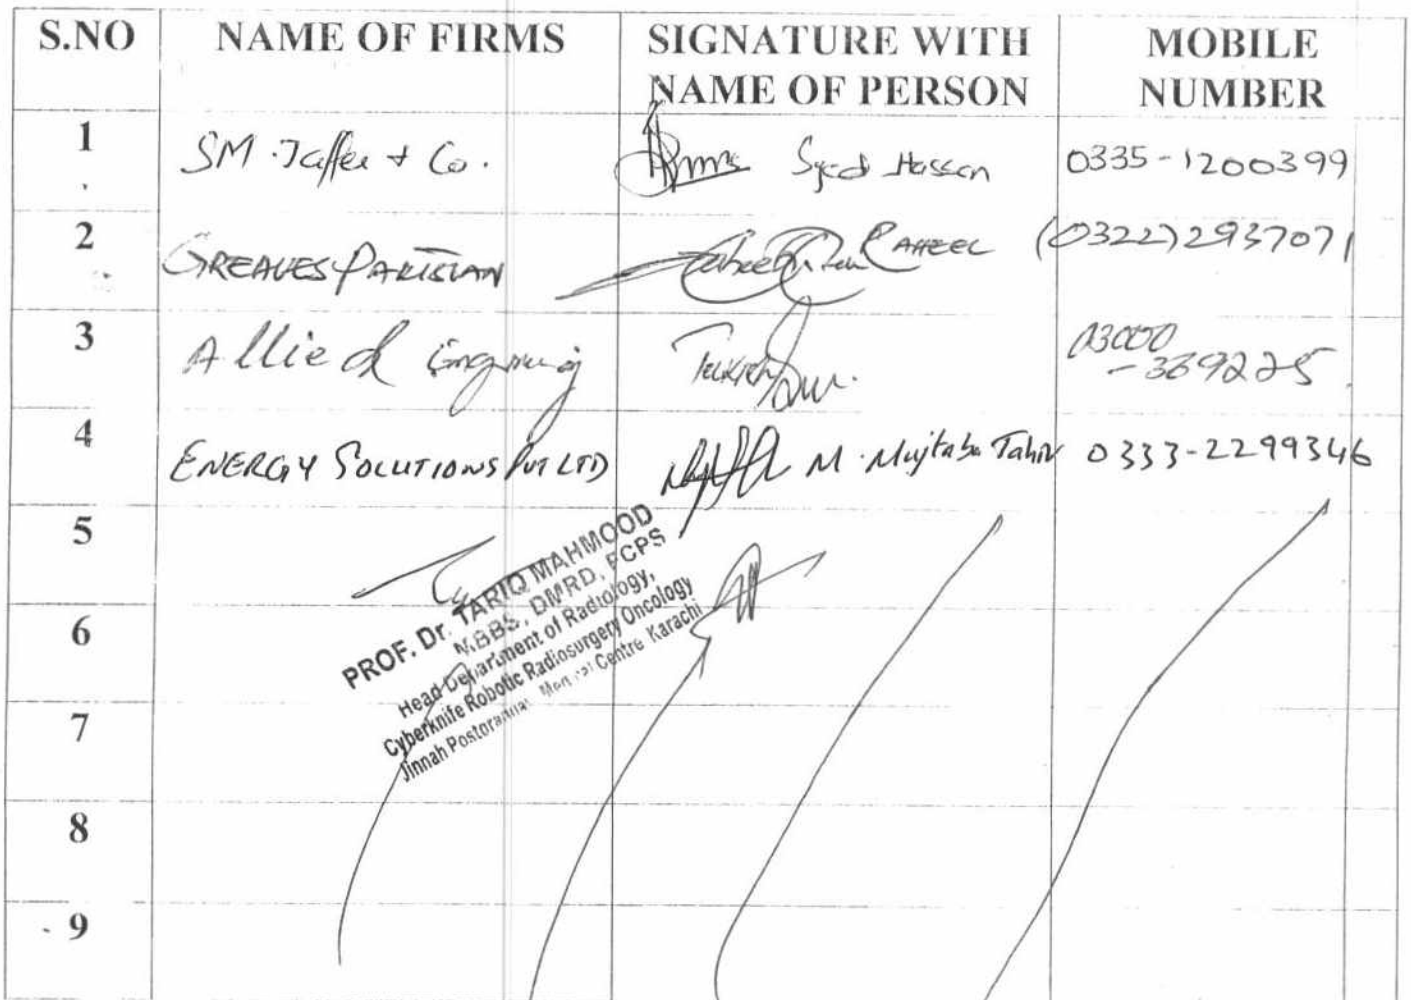 S.NO NAME OF FIRMS SIGNATURE WITH NAME OF PERSON MOBILE NUMBER
1 SM Jaffer + Co. Syed Hassan 0335-1200399
2 GREAVES PAKISTAN RAHEEL (0322)2937071
3 Allied
4 ENERGY SOLUTIONS PVT LTD M. Mujtaba Tahir 0333-2299346
5
PROF. Dr. TARIQ MAHMOOD
MBBS, DMRD, FCPS
Head Department of Radiology,
Cyberknife Robotic Radiosurgery Oncology
Jinnah Centre Karachi
6
7
8
9